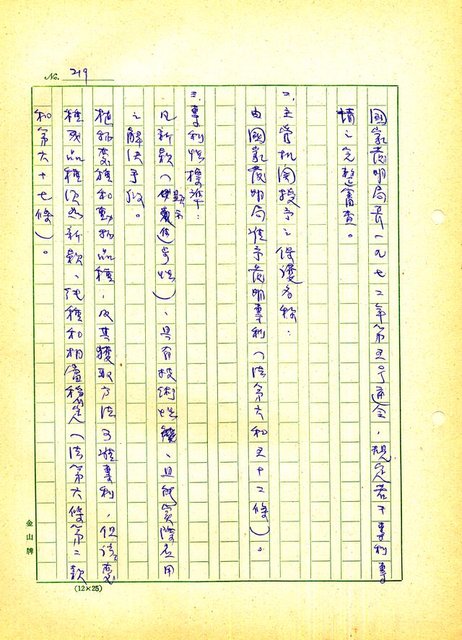 No. 219
國家發明局長一九七二年第五号通令,規定若干專利事
情之完整審查。
2. 主管机関授予之保護名称:
由國家發明局准予發明專利(法第六和五十二條)。
3. 專利性標準:
凡新款(
号性)、具有技術性能、且能實際应用
之解決手段。
植物变種和動物品種,及其獲取方法可准專利,但該变
種或品種須為新款、純種和相當穩定(法第六條第二款
和第六十七條)。
金山牌
(12×25)